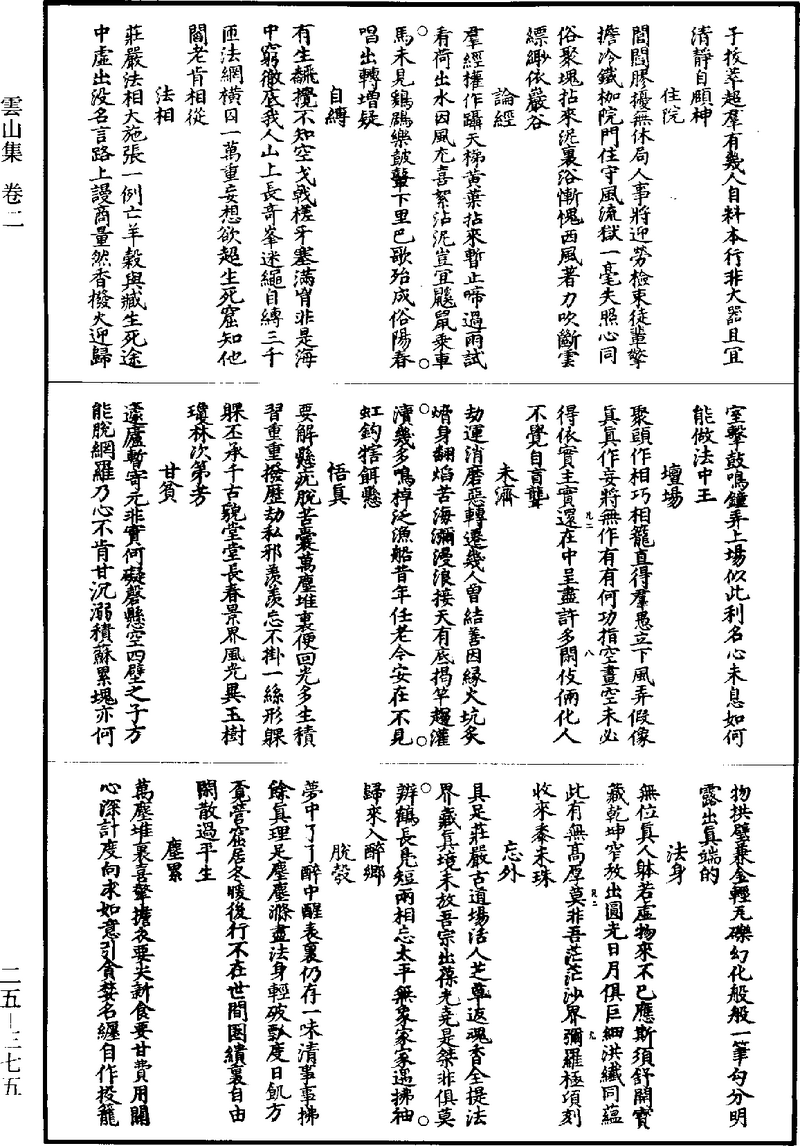 子挨萃超羣有幾人自料本行非大器且宜
清靜自頤神
住院
閭閻膠擾無休局人事將迎勞檢束徒輩擎
擔冷鐵枷院門住守風流獄一毫失照心同
俗聚塊拈來泥裏浴慚愧西風著力吹斷雲
縹緲依巖谷
論經
羣經權作躡天梯黃葉拈來暫止啼過雨試
看荷出水因風宂喜絮沾泥豈宜鼴鼠乘車
馬未見鷄鷃樂鼓鼙下里巴歌殆成俗陽春
唱出轉增疑
自縛
有生飜攪不知空戈戟槎牙塞滿胷非是海
中窮徹底我人山上長奇峯迷繩自縛三千
匝法網橫囚一萬重妄想欲超生死窟知他
閻老肯相從
法相
莊嚴法相大施張一例亡羊穀與臧生死途
中虛出没名言路上謾商量然香撥火迎歸
室擊鼓鳴鐘弄上場似此利名心未息如何
能做法中王
壇場
聚頭作相巧相籠直得羣愚立下風弄假像
真真作妄將無作有有何功指空畫空未必
得依實主實還在中呈盡許多閑伎倆化人
不覺自盲聾
未濟
劫運消磨惡轉遷幾人曾結善因緣火坑炙
㷔身翻焰苦海瀰漫浪接天有底揭竿趨灌
瀆幾多鳴棹泛漁船昔年任老今安在不見
虹鈎犗餌懸
悟真
要解懸疣脫苦囊萬塵堆裏便回光多生積
習重重撥歷劫私邪羨羨忘不掛一絲形躶
躶丕承千古貌堂堂長春景界風光異玉樹
瓊林次第芳
甘貧
蘧廬暫寄元非實何礙磬懸空四壁之子方
能脫網羅乃心不肯甘沉溺積蘇累塊亦何
物拱璧兼金輕瓦礫幻化般般一筆勾分明
露出真端的
法身
無位真人躰若虛物來不已應斯須舒開寶
藏乾坤窄放出圓光日月俱巨細洪纖同蘊
此有無高厚莫非吾茫茫沙界彌羅極項刻
收來黍未珠
忘外
具足莊嚴古道場活人芝草返魂香全提法
界藏真境未放吾宗出葆光堯是桀非俱莫
辨鶴長鳧短兩相忘太平無象家家遇拂袖
歸來入醉鄉
脫殼
夢中了了醉中醒表裏仍存一味清事事拂
餘真理足塵塵滌盡法身輕破瓢度日飢方
覓營窟居冬暖後行不在世間圈繢裏自由
閑散過平生
塵累
萬塵堆裏喜擎擔衣要夫新食要甘費用關
心深計度向求如意引貪婪名纏自作投籠
雲山集 卷二
二五—三七五